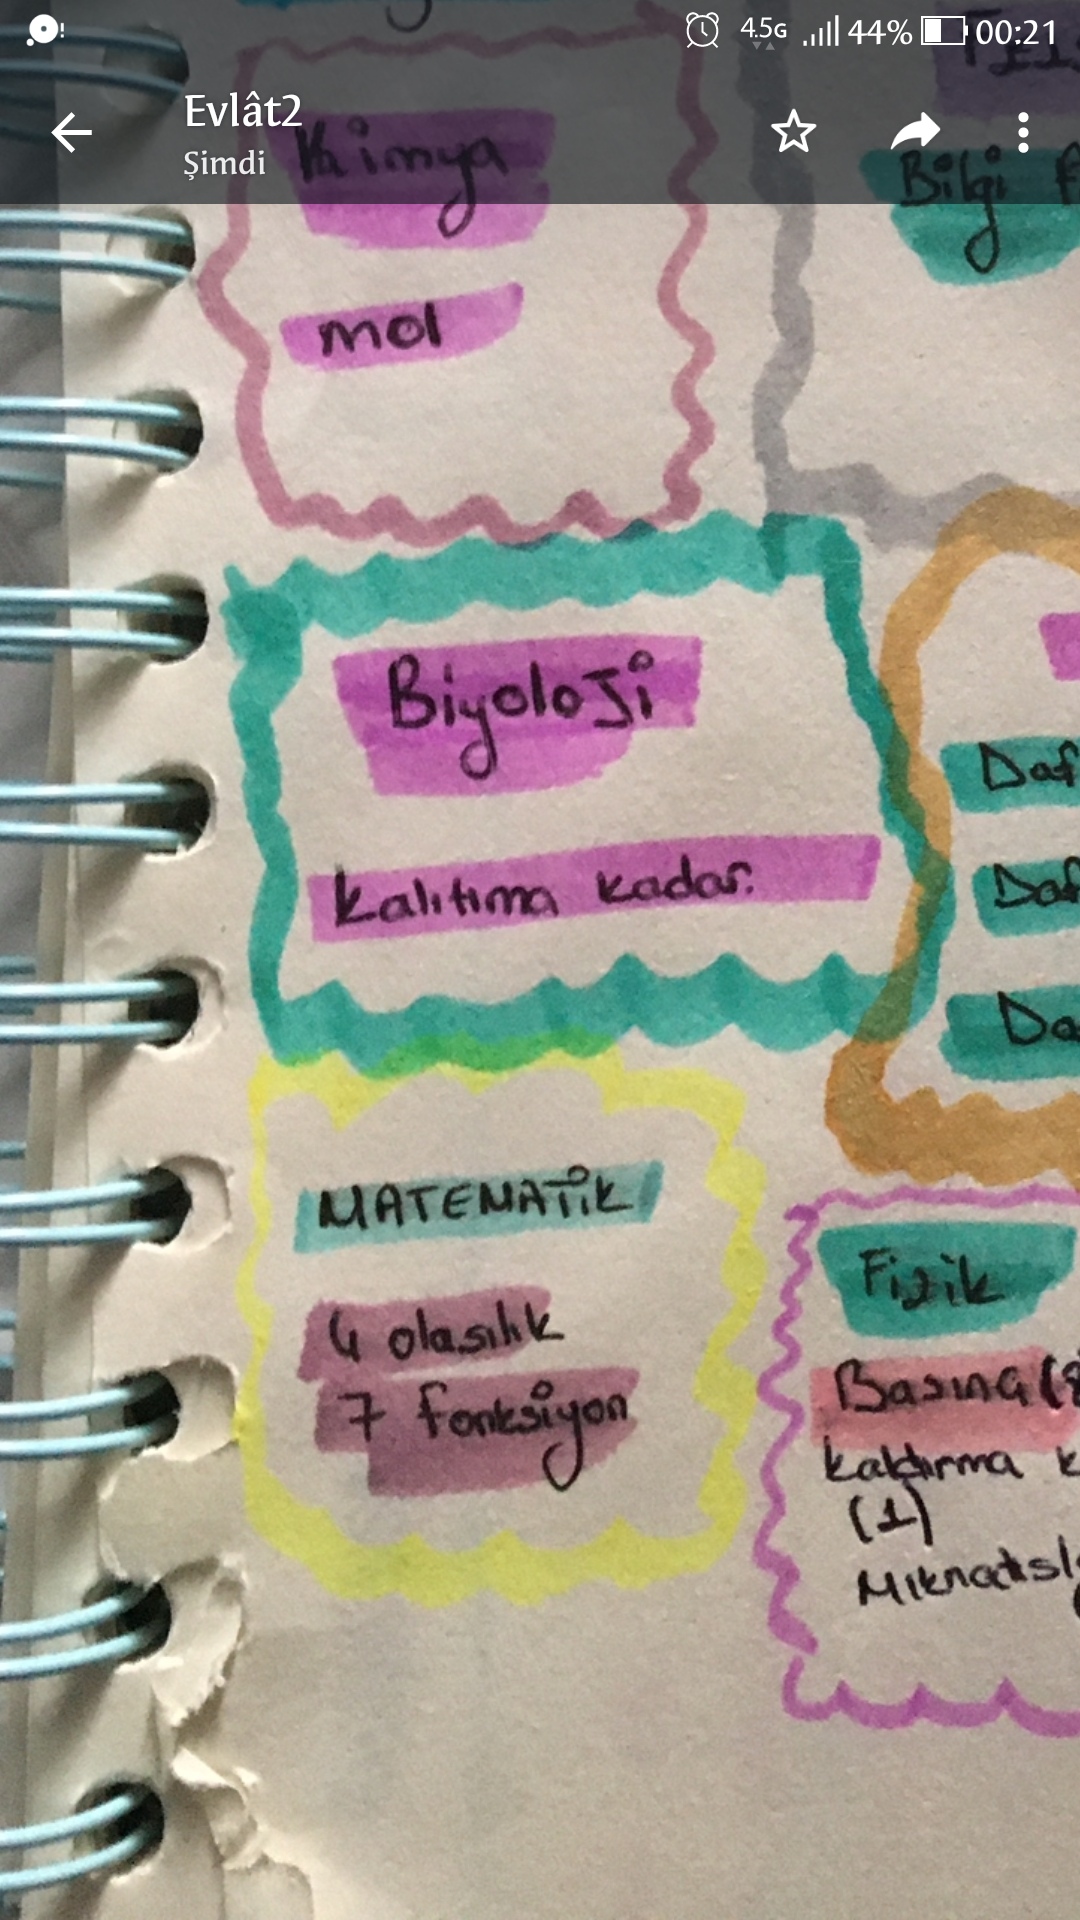 4.5G 44% 00:21
Evlât2
Şimdi
Kimya
mol
Bilgi
Biyoloji
kalıtıma kadar.
MATEMATİK
4 olasılık
7 fonksiyon
Fizik
Basınç
kaldırma
(1)